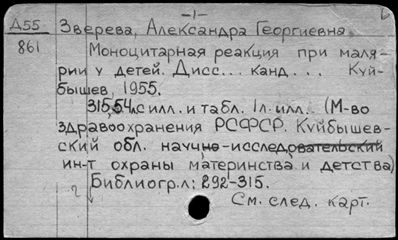 -1-
А55 Зверева, Александра Георгиевна
861 Моноцитарная реакция при маля-
рии у детей. Дисс... канд. ... Куй-
бышев, 1955.
315,54л. с илл. и табл. 1л. илл. (М-во
здравоохранения РСФСР. Куйбышев-
ский обл. научно-исследовательский
ин-т охраны материнства и детства)
Библиогр. л: 292-315.
См. след. карт.